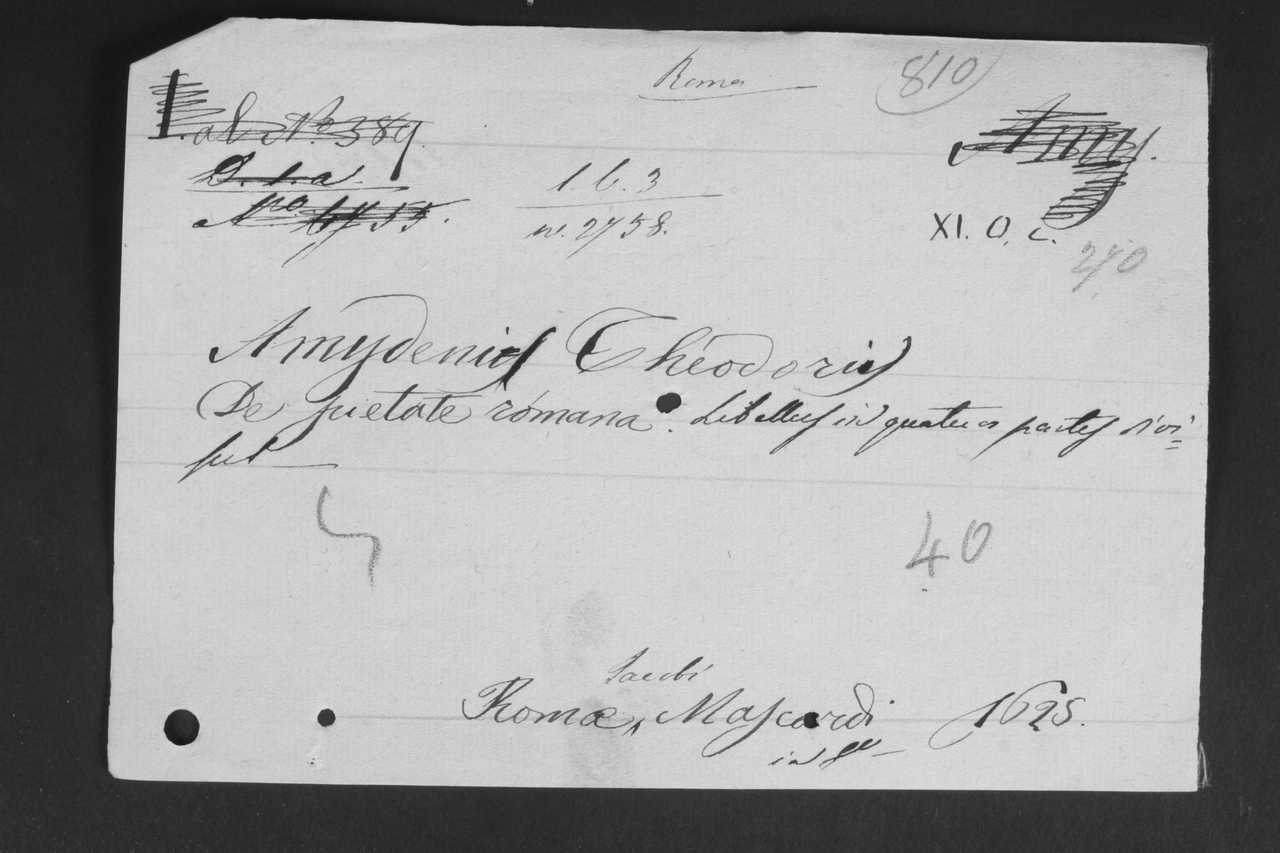 Roma
810
ab. No. 389.
D. 1. a.
Nro 6755.
1. b. 3
n. 2738.
Amy.
XI. O. c.
270
Amydenis Theodorij
De pietate romana. Libellus in quatuor partes divi=
sus
40
Jacobi
Romæ, Mascardi 1625.
in 8º